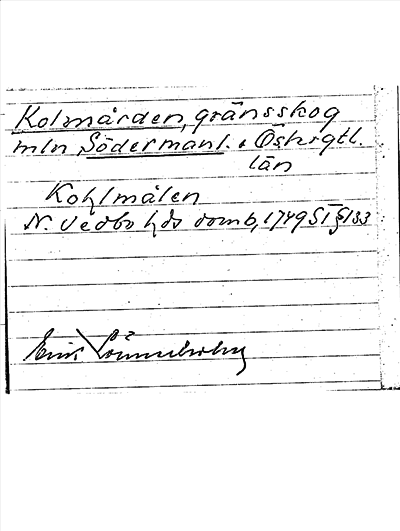 Kolmården, gränsskog
mln Södermanl. & Östergtl.
län
Kohlmålen
N. Vedbo hds domb, 1749 ST § 133
Erik Lönnerholm